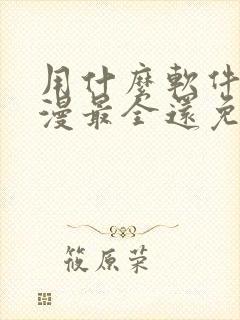 用什麼軟件
漫最全還免
筱原荣